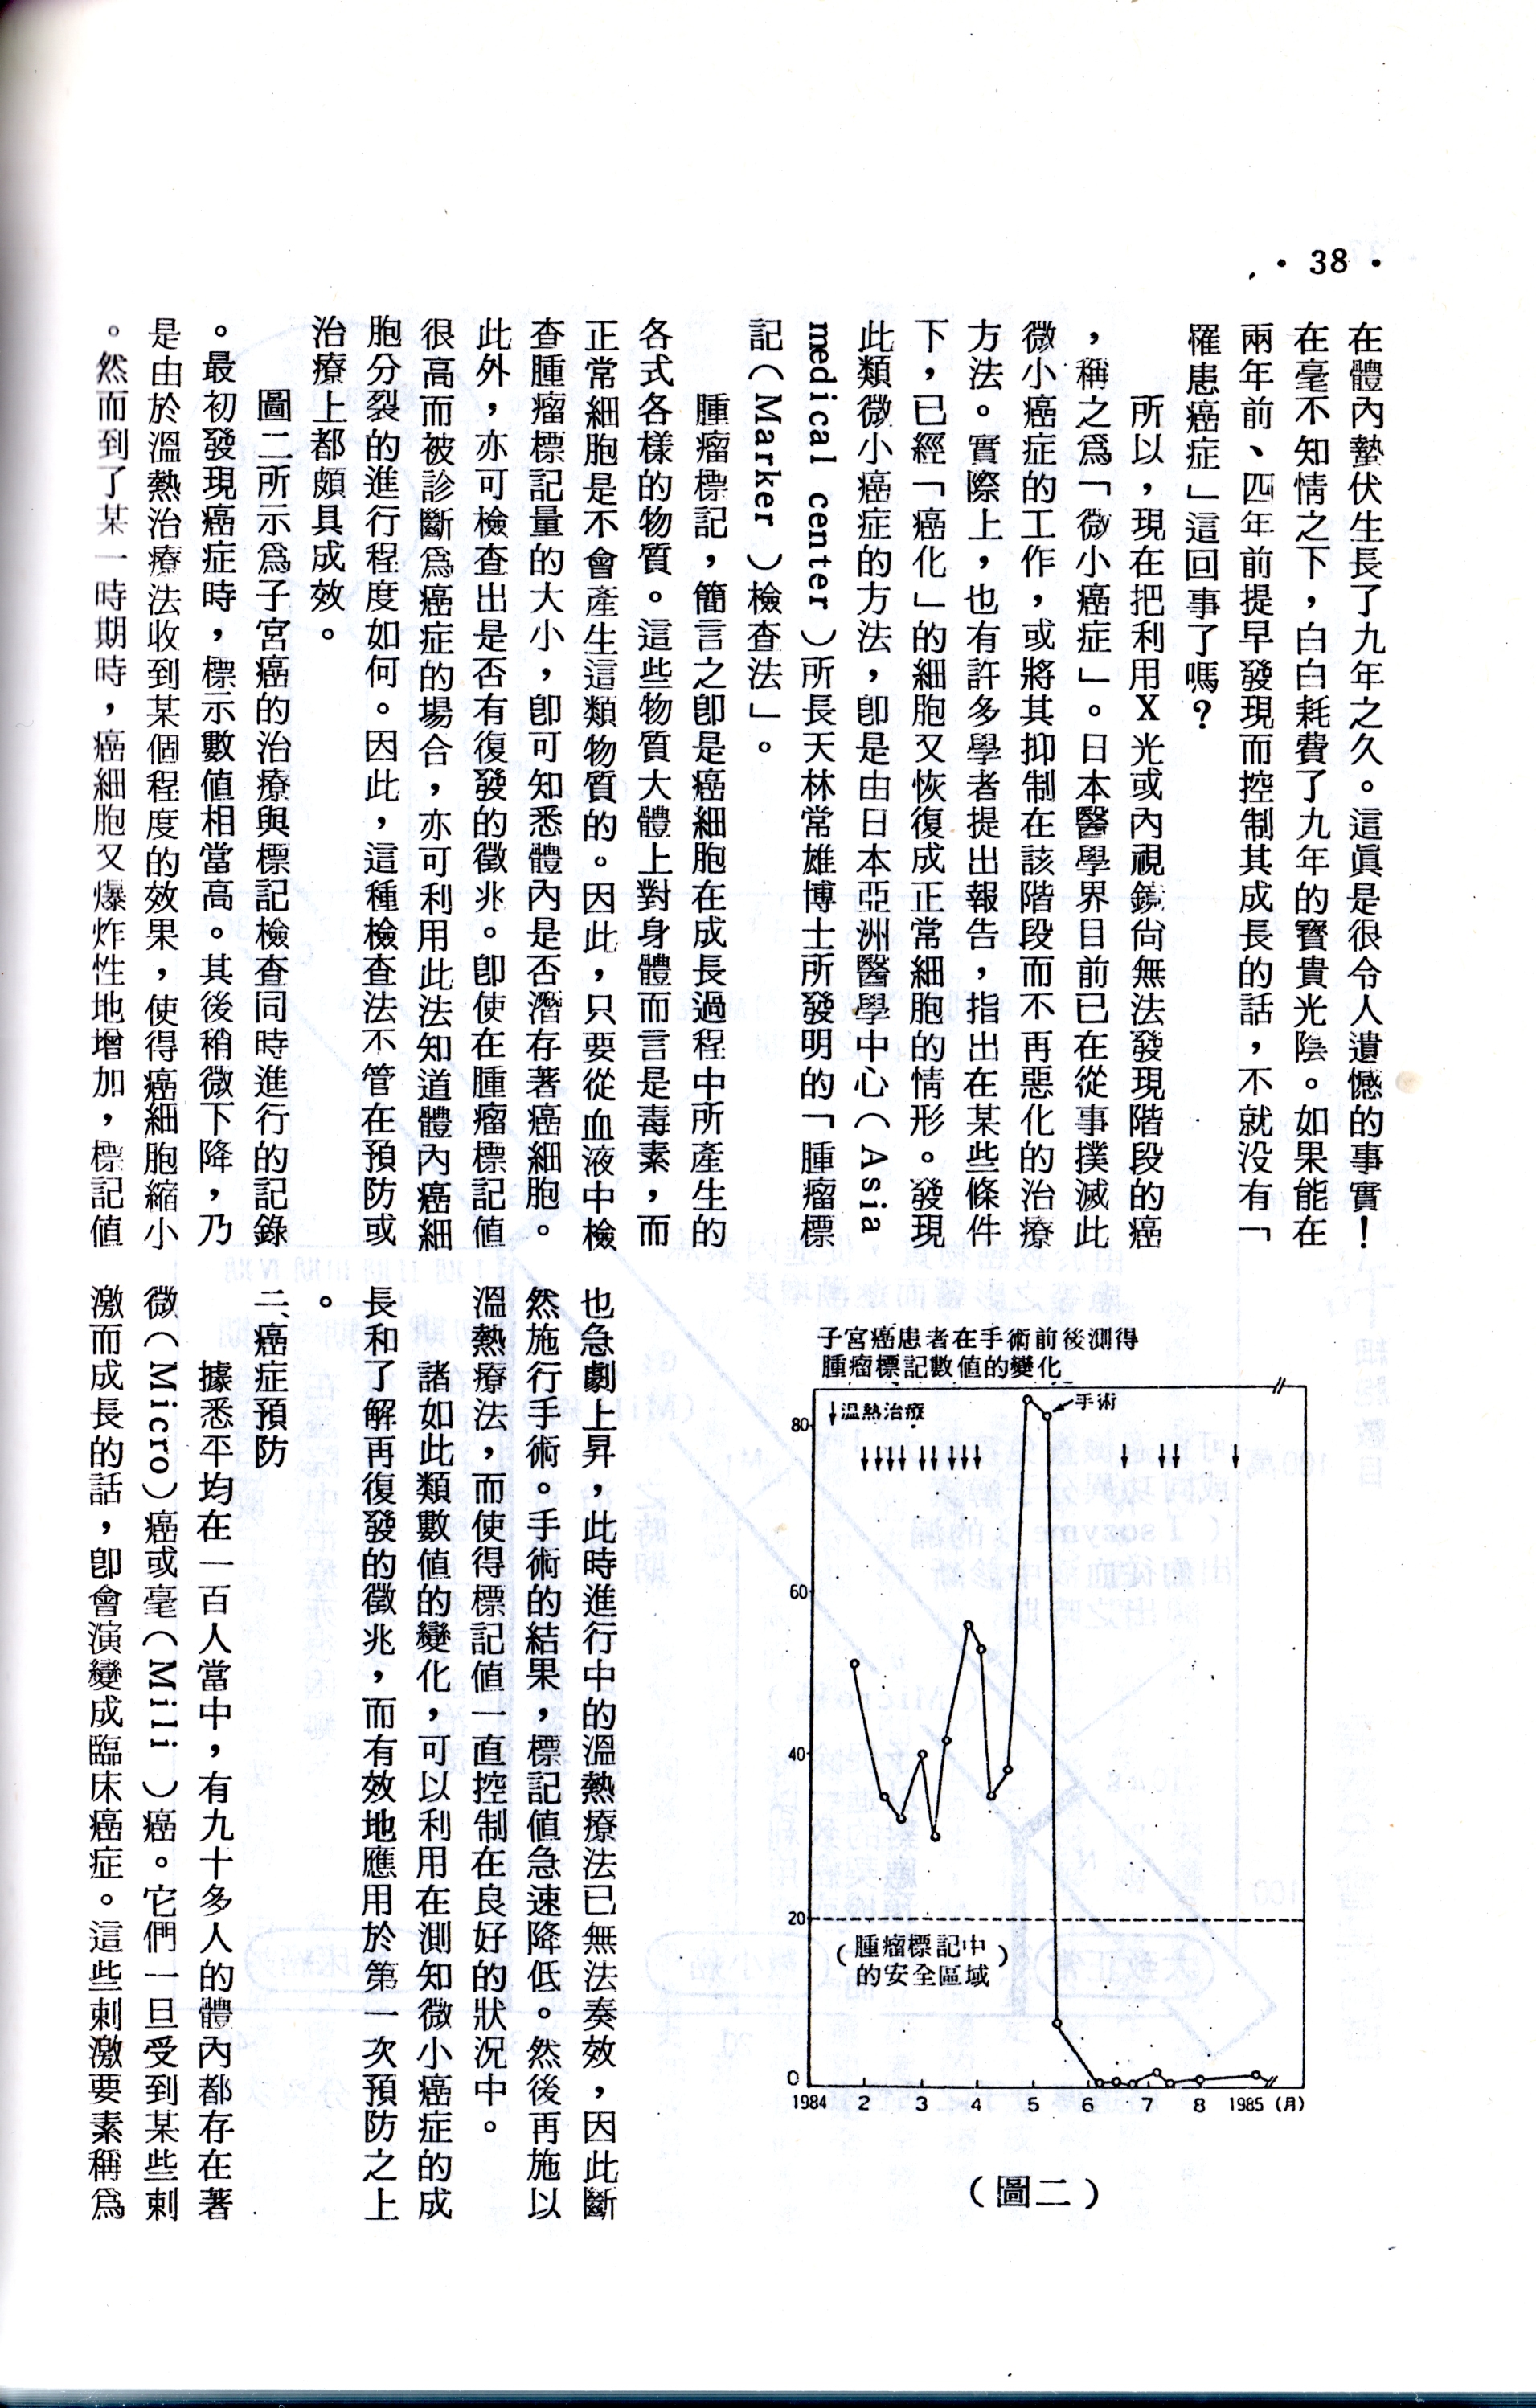 · 38 ·
在體內蟄伏生長了九年之久。這眞是很令人遺憾的事實!
在毫不知情之下,白白耗費了九年的寶貴光陰。如果能在
兩年前、四年前提早發現而控制其成長的話,不就没有「
罹患癌症」這回事了嗎?
所以,現在把利用X光或內視鏡尙無法發現階段的癌
,稱之爲「微小癌症」。日本醫學界目前已在從事撲滅此
微小癌症的工作,或將其抑制在該階段而不再惡化的治療
方法。實際上,也有許多學者提出報告,指出在某些條件
下,已經「癌化」的細胞又恢復成正常細胞的情形。發現
此類微小癌症的方法,卽是由日本亞洲醫學中心(Asia
medical center)所長天林常雄博士所發明的「腫瘤標
記(Marker)檢查法」。
腫瘤標記,簡言之卽是癌細胞在成長過程中所產生的
各式各樣的物質。這些物質大體上對身體而言是毒素,而
正常細胞是不會產生這類物質的。因此,只要從血液中檢
查腫瘤標記量的大小,卽可知悉體內是否潛存著癌細胞。
此外,亦可檢查出是否有復發的徵兆。卽使在腫瘤標記値
很高而被診斷爲癌症的場合,亦可利用此法知道體內癌細
胞分裂的進行程度如何。因此,這種檢查法不管在預防或
治療上都頗具成效。
圖二所示爲子宮癌的治療與標記檢查同時進行的記錄
。最初發現癌症時,標示數値相當高。其後稍微下降,乃
是由於溫熱治療法收到某個程度的效果,使得癌細胞縮小
。然而到了某一時期時,癌細胞又爆炸性地增加,標記値
子宮癌患者在手術前後測得
腫瘤標記數値的變化
↓溫熱治療
手術
80
60
40
20
0
(腫瘤標記中
的安全區域)
1984 2 3 4 5 6 7 8 1985 (月)
(圖二)
也急劇上昇,此時進行中的溫熱療法已無法奏效,因此斷
然施行手術。手術的結果,標記値急速降低。然後再施以
溫熱療法,而使得標記値一直控制在良好的狀況中。
諸如此類數値的變化,可以利用在測知微小癌症的成
長和了解再復發的徵兆,而有效地應用於第一次預防之上
。
二、癌症預防
據悉平均在一百人當中,有九十多人的體內都存在著
微(Micro)癌或毫(Mili)癌。它們一旦受到某些刺
激而成長的話,卽會演變成臨床癌症。這些刺激要素稱爲